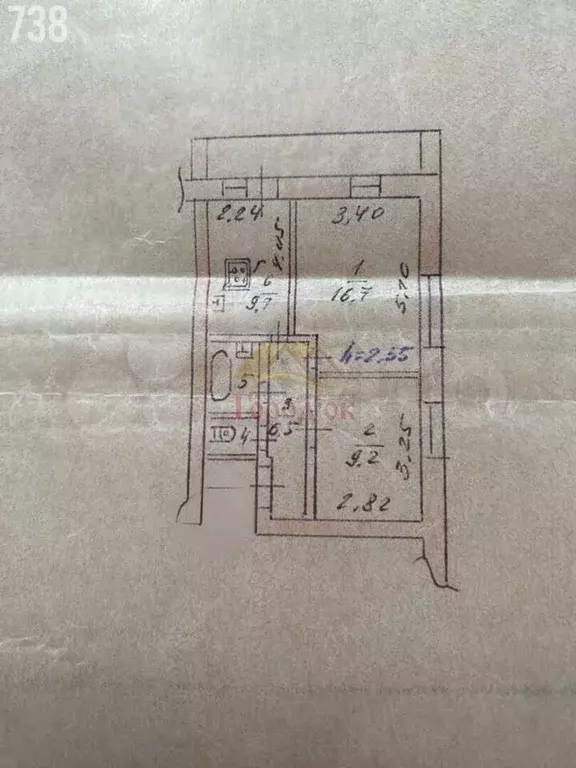 738
2,24
3,40
4.05
1
16.7
5.70
6
9.7
h=2.55
5
3
6.5
ГородОк
4
2
9.2
3,25
2,82